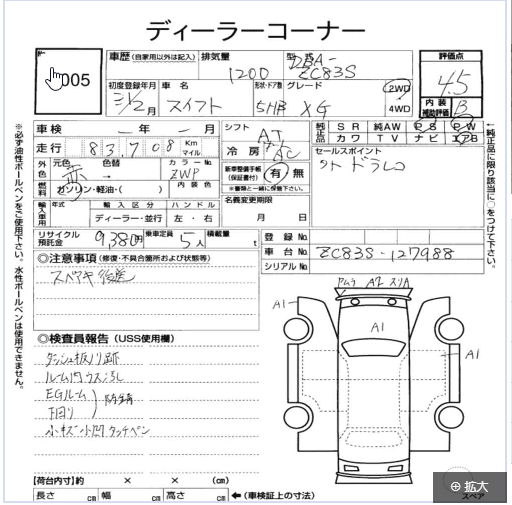 ディーラーコーナー
005
車歴 (自家用以外は記入) 排気量 1200 型式 DBA-ZC83S 評価点 4.5
初度登録年月 31/2月 車名 スイフト 形状・ドア数 5HB グレード XG 2WD 4WD 内装補助評価 B
車検 年 月 シフト AT 純正品 SR 純AW PS PW
走行 83,708 Km マイル 冷房 AC カワ TV ナビ エアB
外色 元色 赤 色替 カラーNo. ZWP 新車整備手帳(保証書付) 有・無 セールスポイント
※書類と一緒に保管下さい。
燃料 ガソリン・軽油・( ) 内装色 名義変更期限 月 日
輸入車用 年式 輸入区分 ディーラー・並行 ハンドル 左・右
リサイクル預託金 9,380円 乗車定員 5人 積載量 t 登録No.
車台 ZC83S-127988
シリアルNo.
◎注意事項 (修復・不具合箇所および状態等)
スペアキ 後送
A1
A1
A1
◎検査員報告 (USS使用欄)
ダッシュ板ノリ跡
EGルーム
下回り
防錆
【荷台内寸】約 × × (cm)
長さ cm 幅 cm 高さ cm ←(車検証上の寸法)
スペア
拡大
※必ず油性ボールペンをご使用下さい。水性ボールペンは使用できません。
←純正品に限り該当に○をつけて下さい。